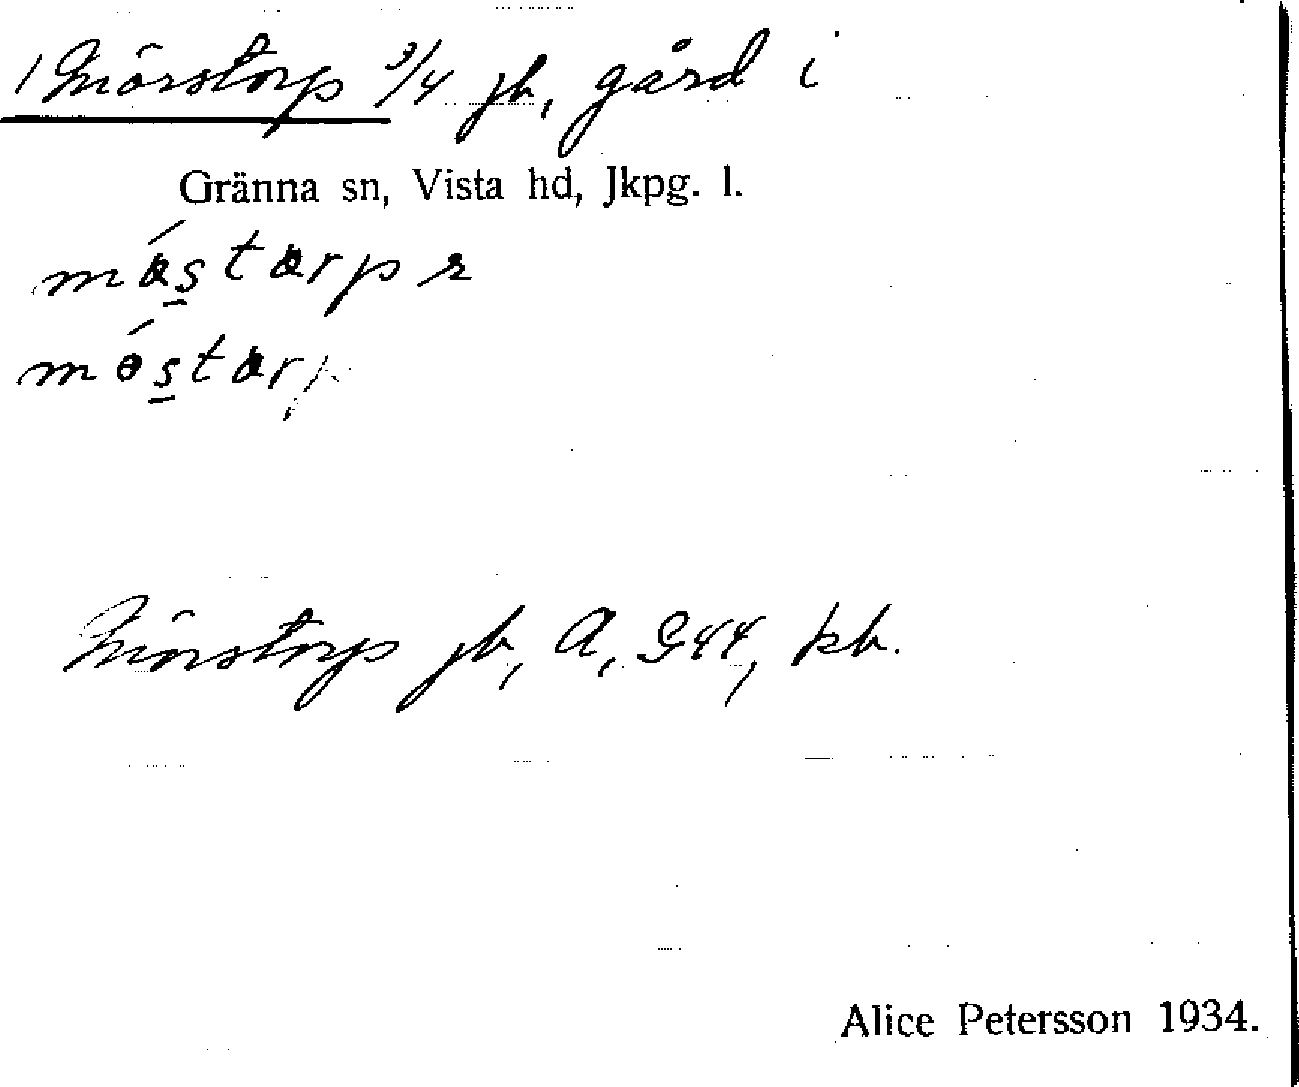 1 Mörstorp 3/4 jb, gård i
Gränna sn, Vista hd, Jkpg. l.
mǿs̱tarp r
mǿs̱tarp
Mörstorp jb, A, G44, kb.
Alice Petersson 1934.